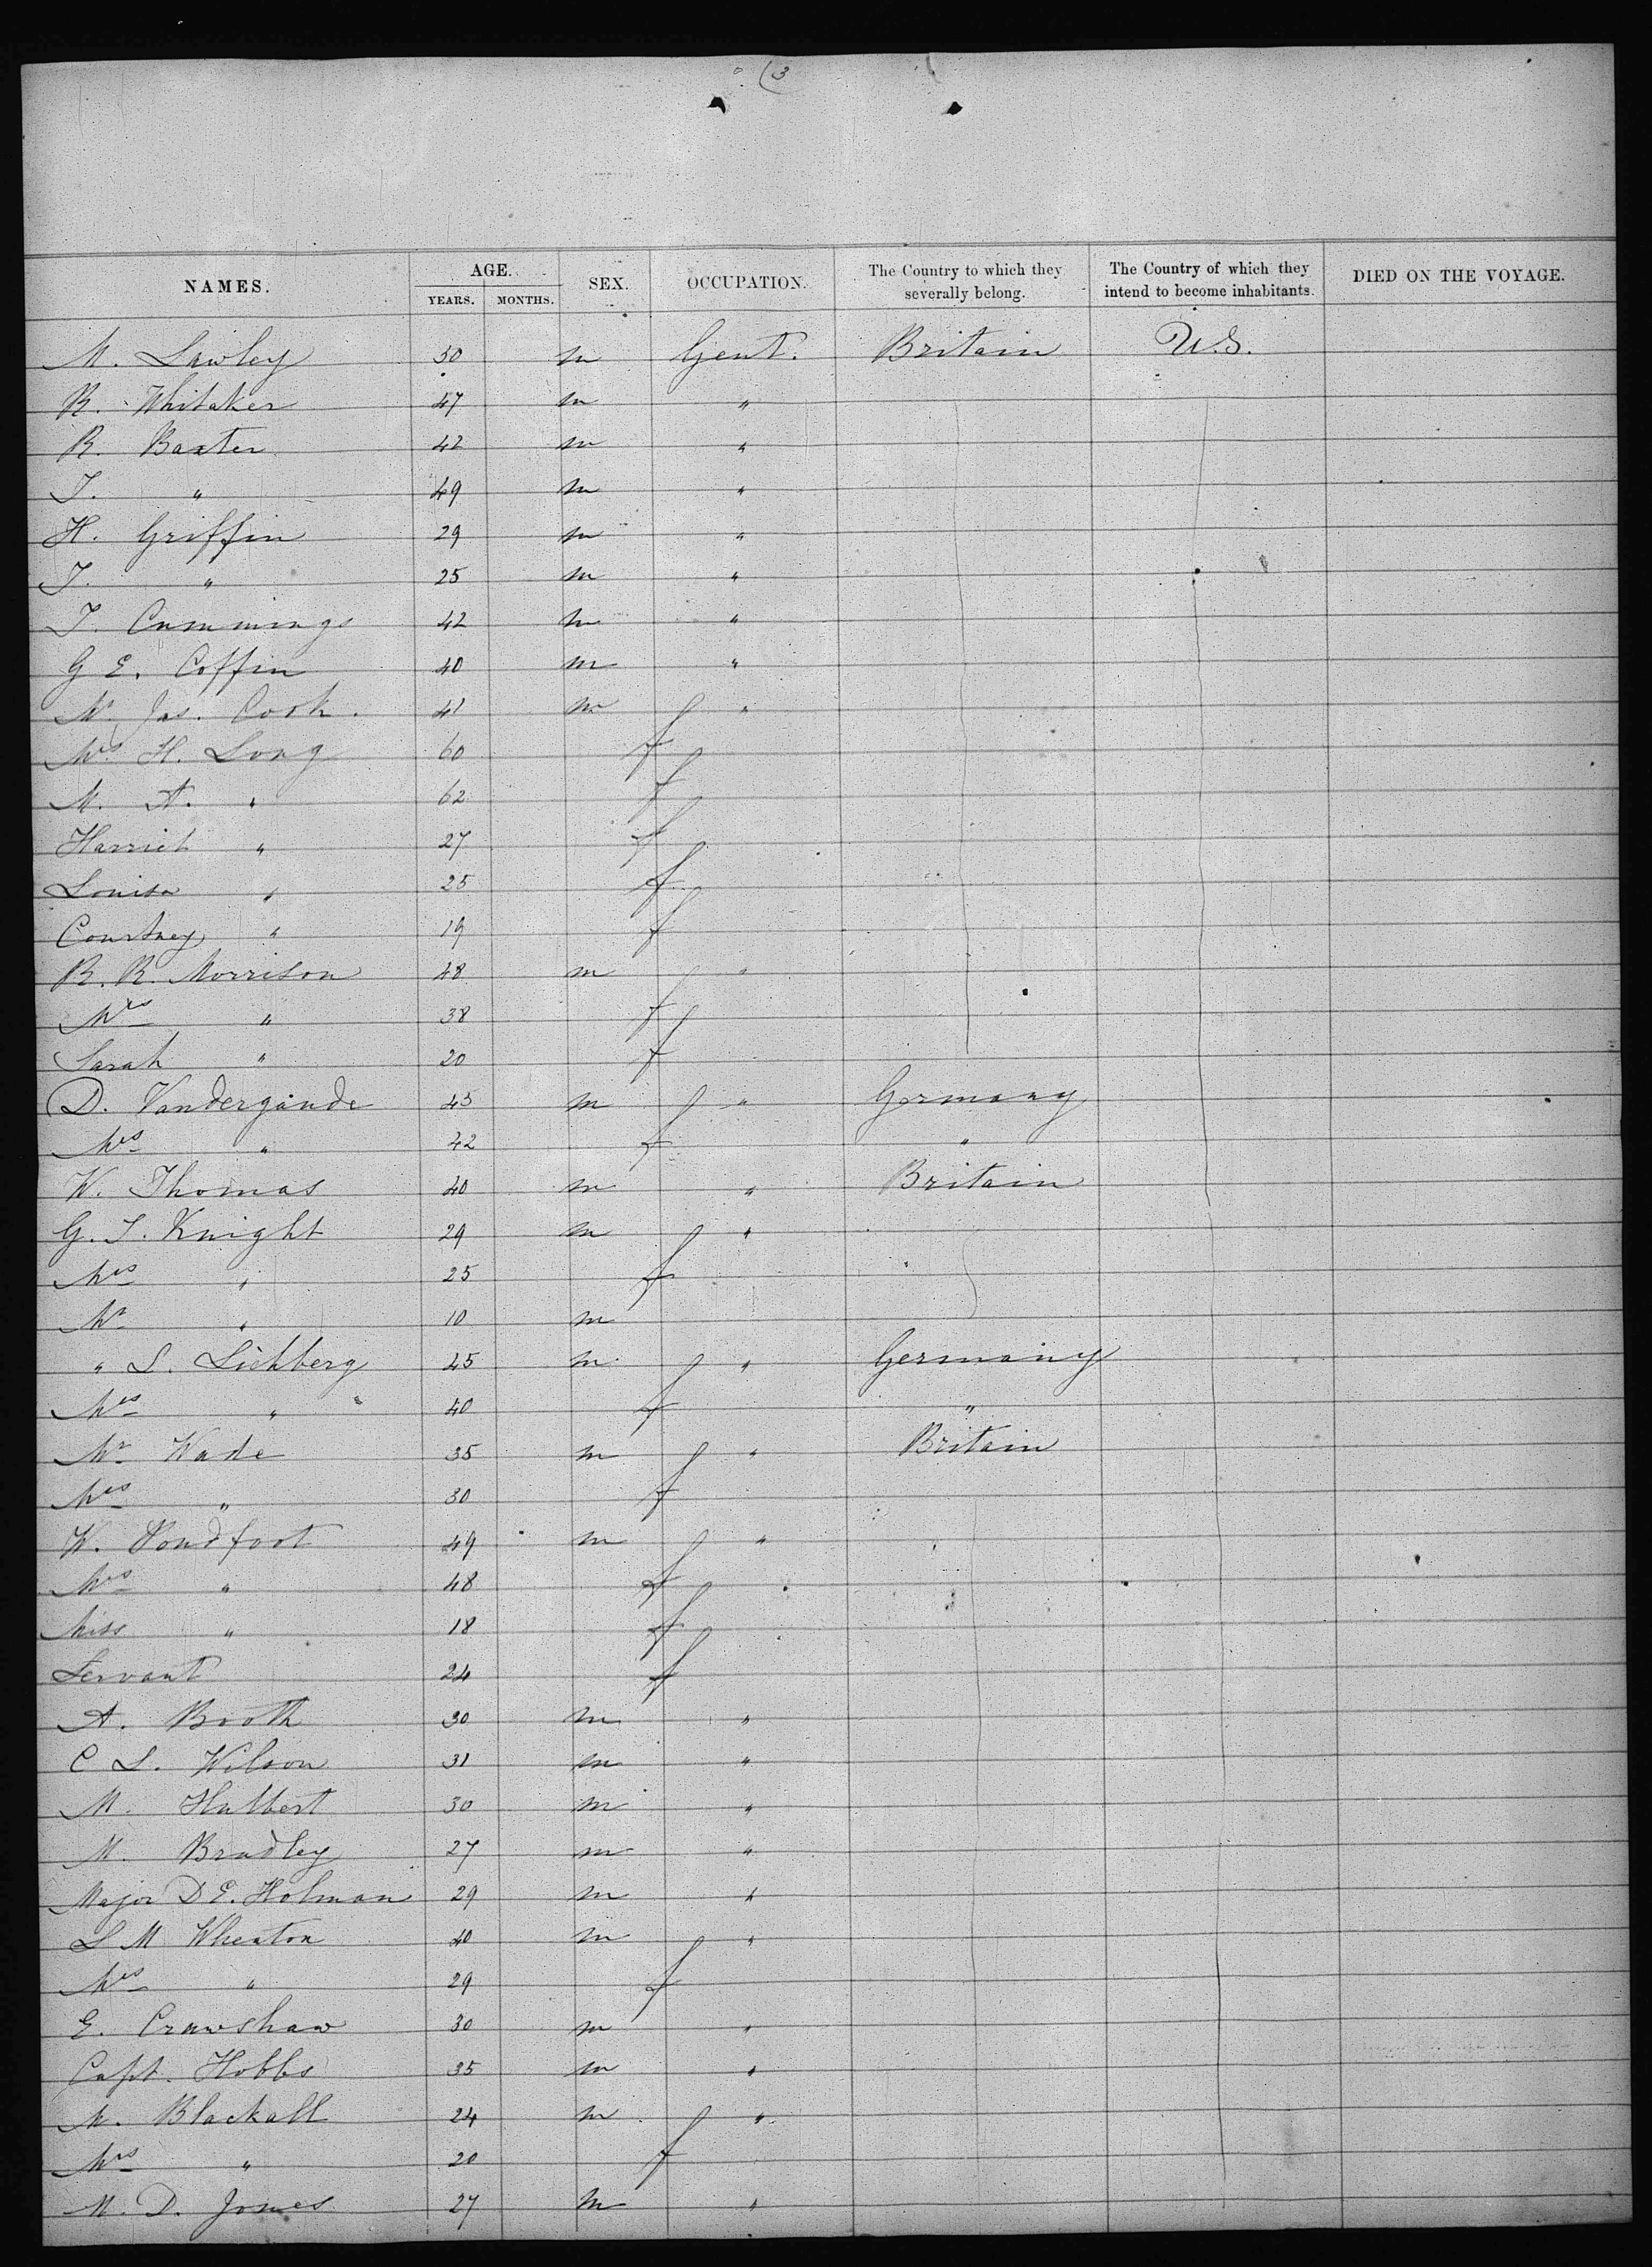 (3
NAMES. AGE. YEARS. MONTHS. SEX. OCCUPATION. The Country to which they severally belong. The Country of which they intend to become inhabitants. DIED ON THE VOYAGE.
M. Lawley 30 m Gent. Britain U.S.
R. Whitaker 47 m "
R. Baxter 42 m "
T. " 49 m "
H. Griffin 29 m "
T. " 25 m "
T. Cummings 42 m "
G E. Coffin 40 m "
Mr Jas. Cook. 41 m "
Mrs H. Long 60 f
M. A. " 62 f
Harriet " 27 f
Louisa " 25 f
Courtney " 19 f
R. R. Morrison 48 m "
Mrs " 38 f
Sarah " 20 f
D. Vandergande 45 m " Germany
Mrs " 42 f "
W. Thomas 40 m " Britain
G. T. Knight 29 m "
Mrs " 25 f
Mr " 10 m
" L. Lichberg 45 m " Germany
Mrs " 40 f "
Mr Wade 35 m " Britain
Mrs " 30 f
W. 49 m "
Mrs " 48 f
Miss " 18 f
Servant 24 f
A. Booth 30 m "
C L. Wilson 31 m "
M. Hulbert 30 m "
M. Bradley 27 m "
Major D E. Holman 29 m "
L M Wheaton 40 m "
Mrs " 29 f
E. Crawshaw 30 m "
Capt. Hobbs 35 m "
M. Blackall 24 m "
Mrs " 20 f
M. D. Jones 27 m "